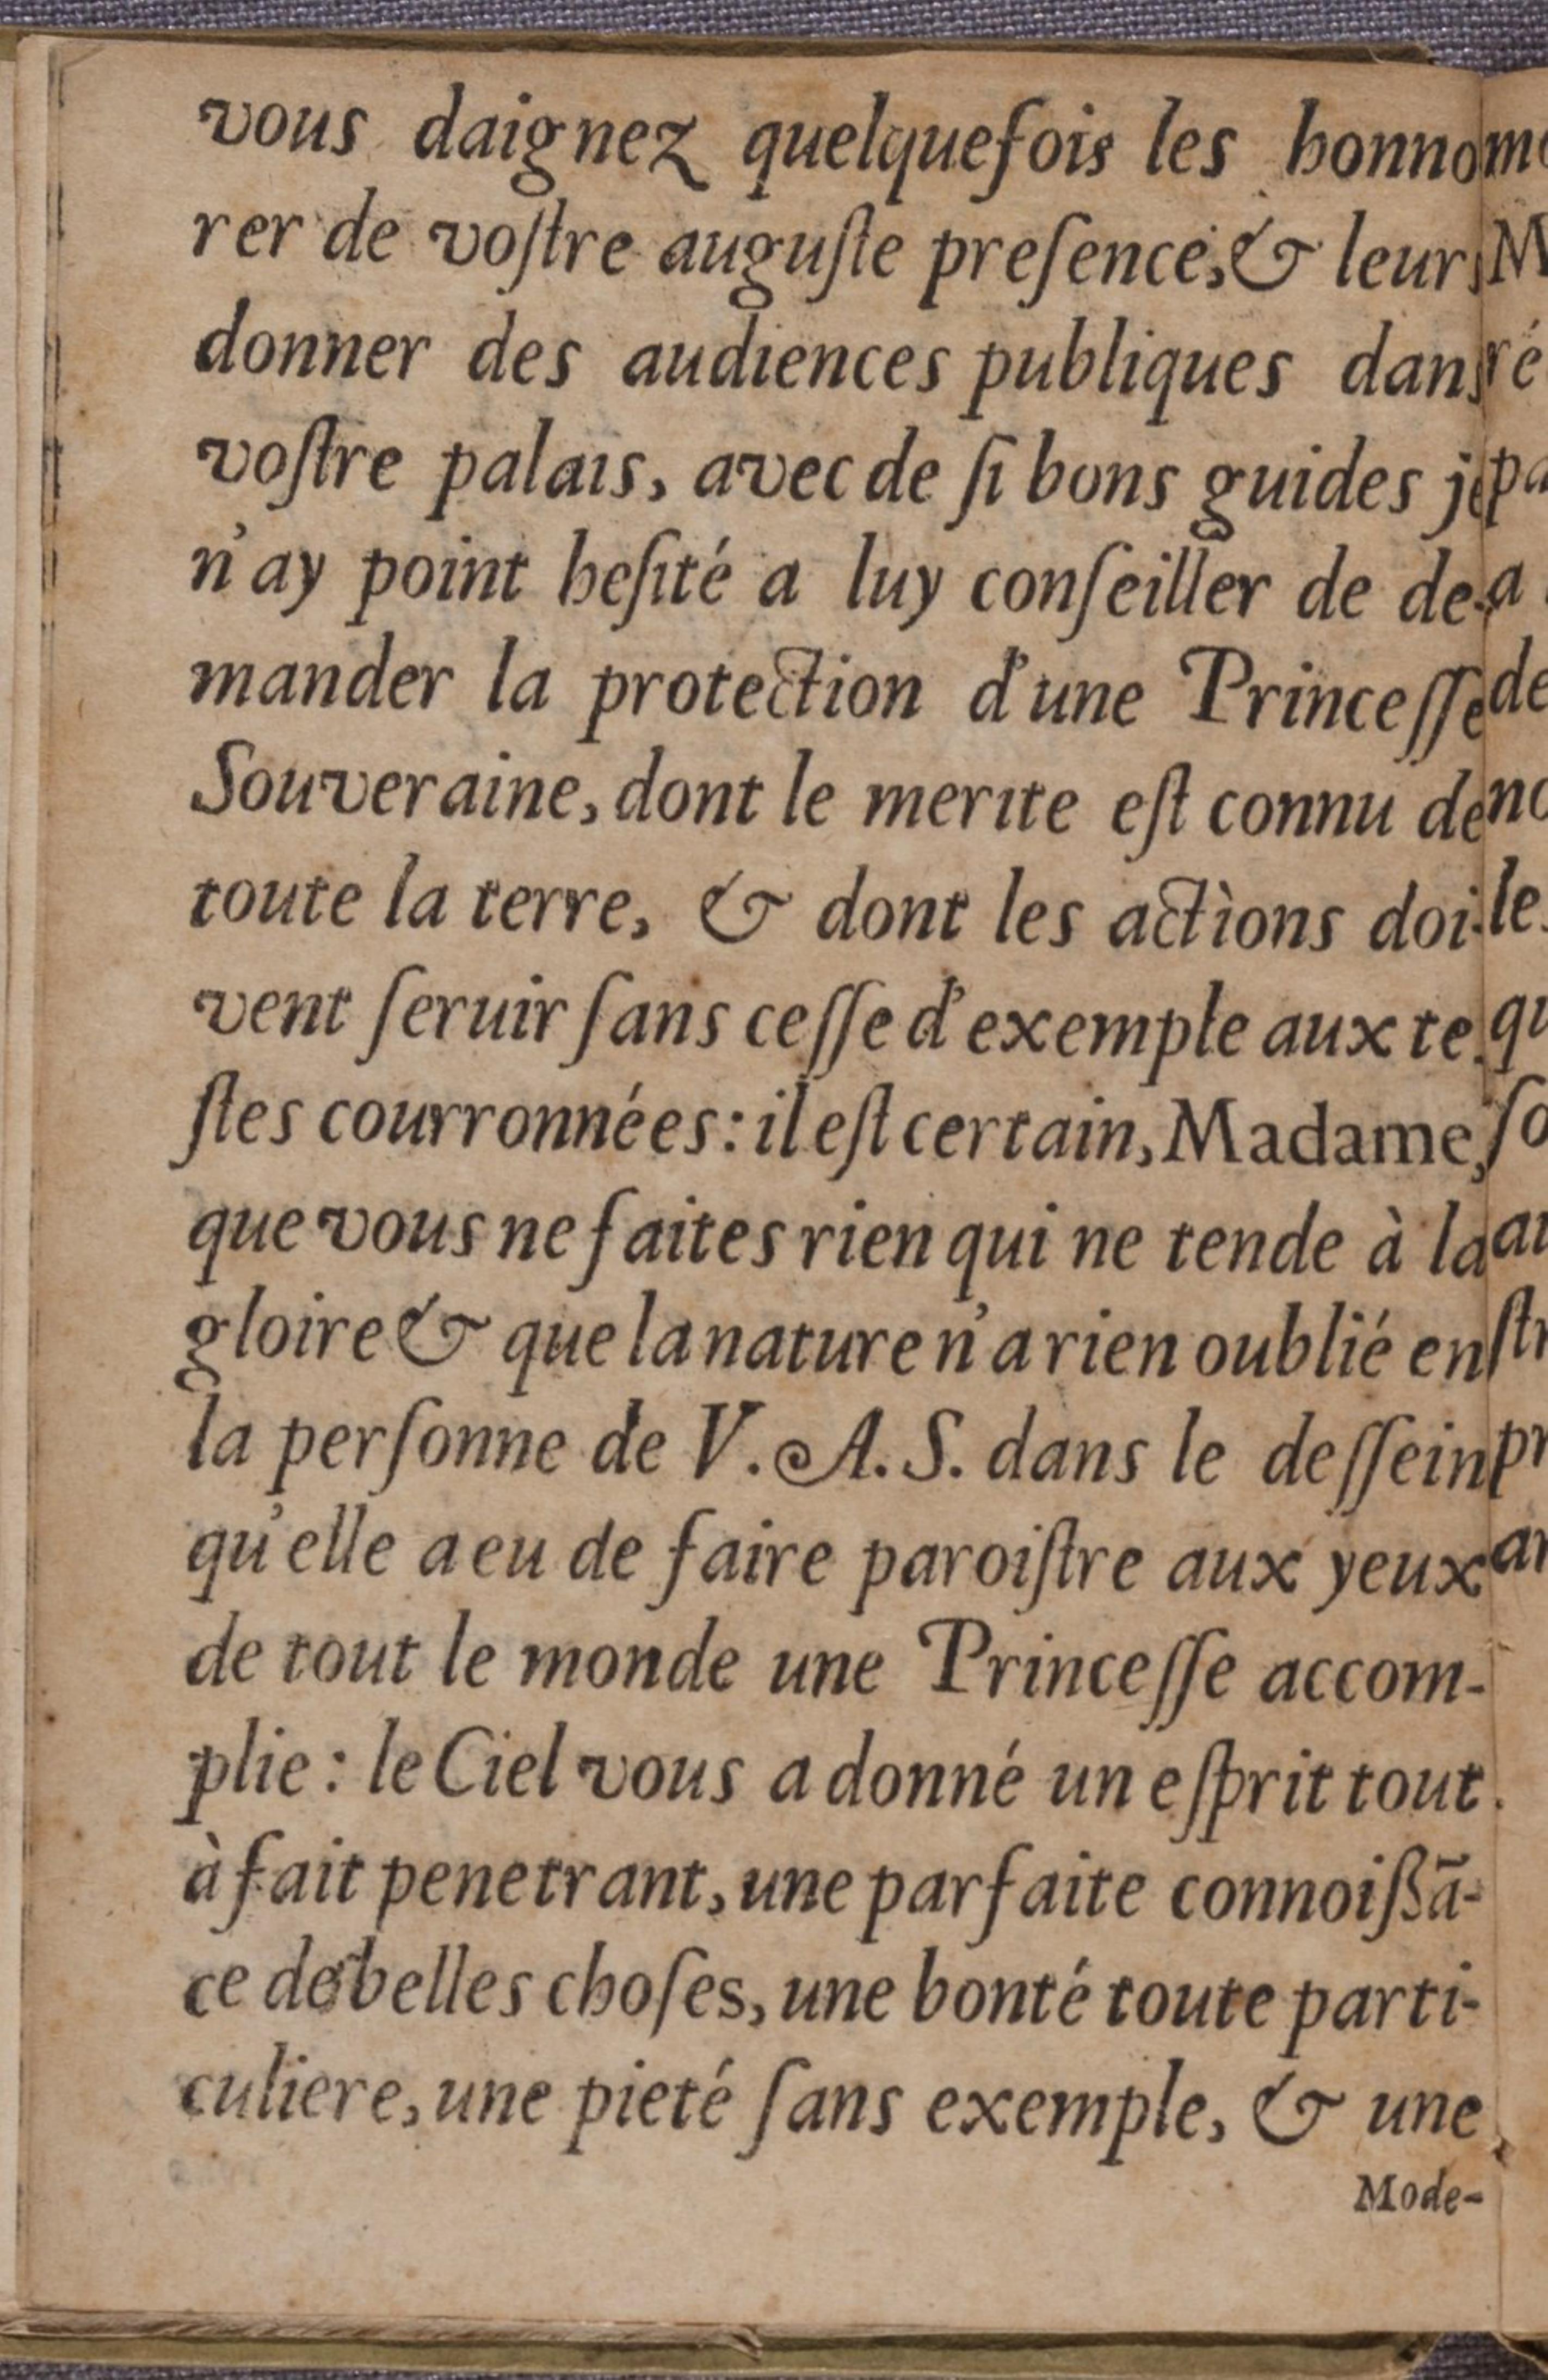 vous daignez quelquefois les honno
rer de voſtre auguſte preſence, & leurs
donner des audiences publiques dans
voſtre palais, avec de ſi bons guides je
n'ay point heſité a luy conſeiller de de-
mander la protection d'une Princeſſe
Souveraine, dont le merite eſt connu de
toute la terre, & dont les actions doi-
vent ſeruir ſans ceſſe d'exemple aux te
ſtes courronnées: il eſt certain, Madame,
que vous ne faites rien qui ne tende à la
gloire & que la nature n'a rien oublié en
la perſonne de V. A. S. dans le deſſein
qu'elle a eu de faire paroiſtre aux yeux
de tout le monde une Princeſſe accom-
plie: le Ciel vous a donné un eſprit tout
à fait penetrant, une parfaite connoiſſã-
ce des belles choſes, une bonté toute parti-
culiere, une pieté ſans exemple, & une
Mode-